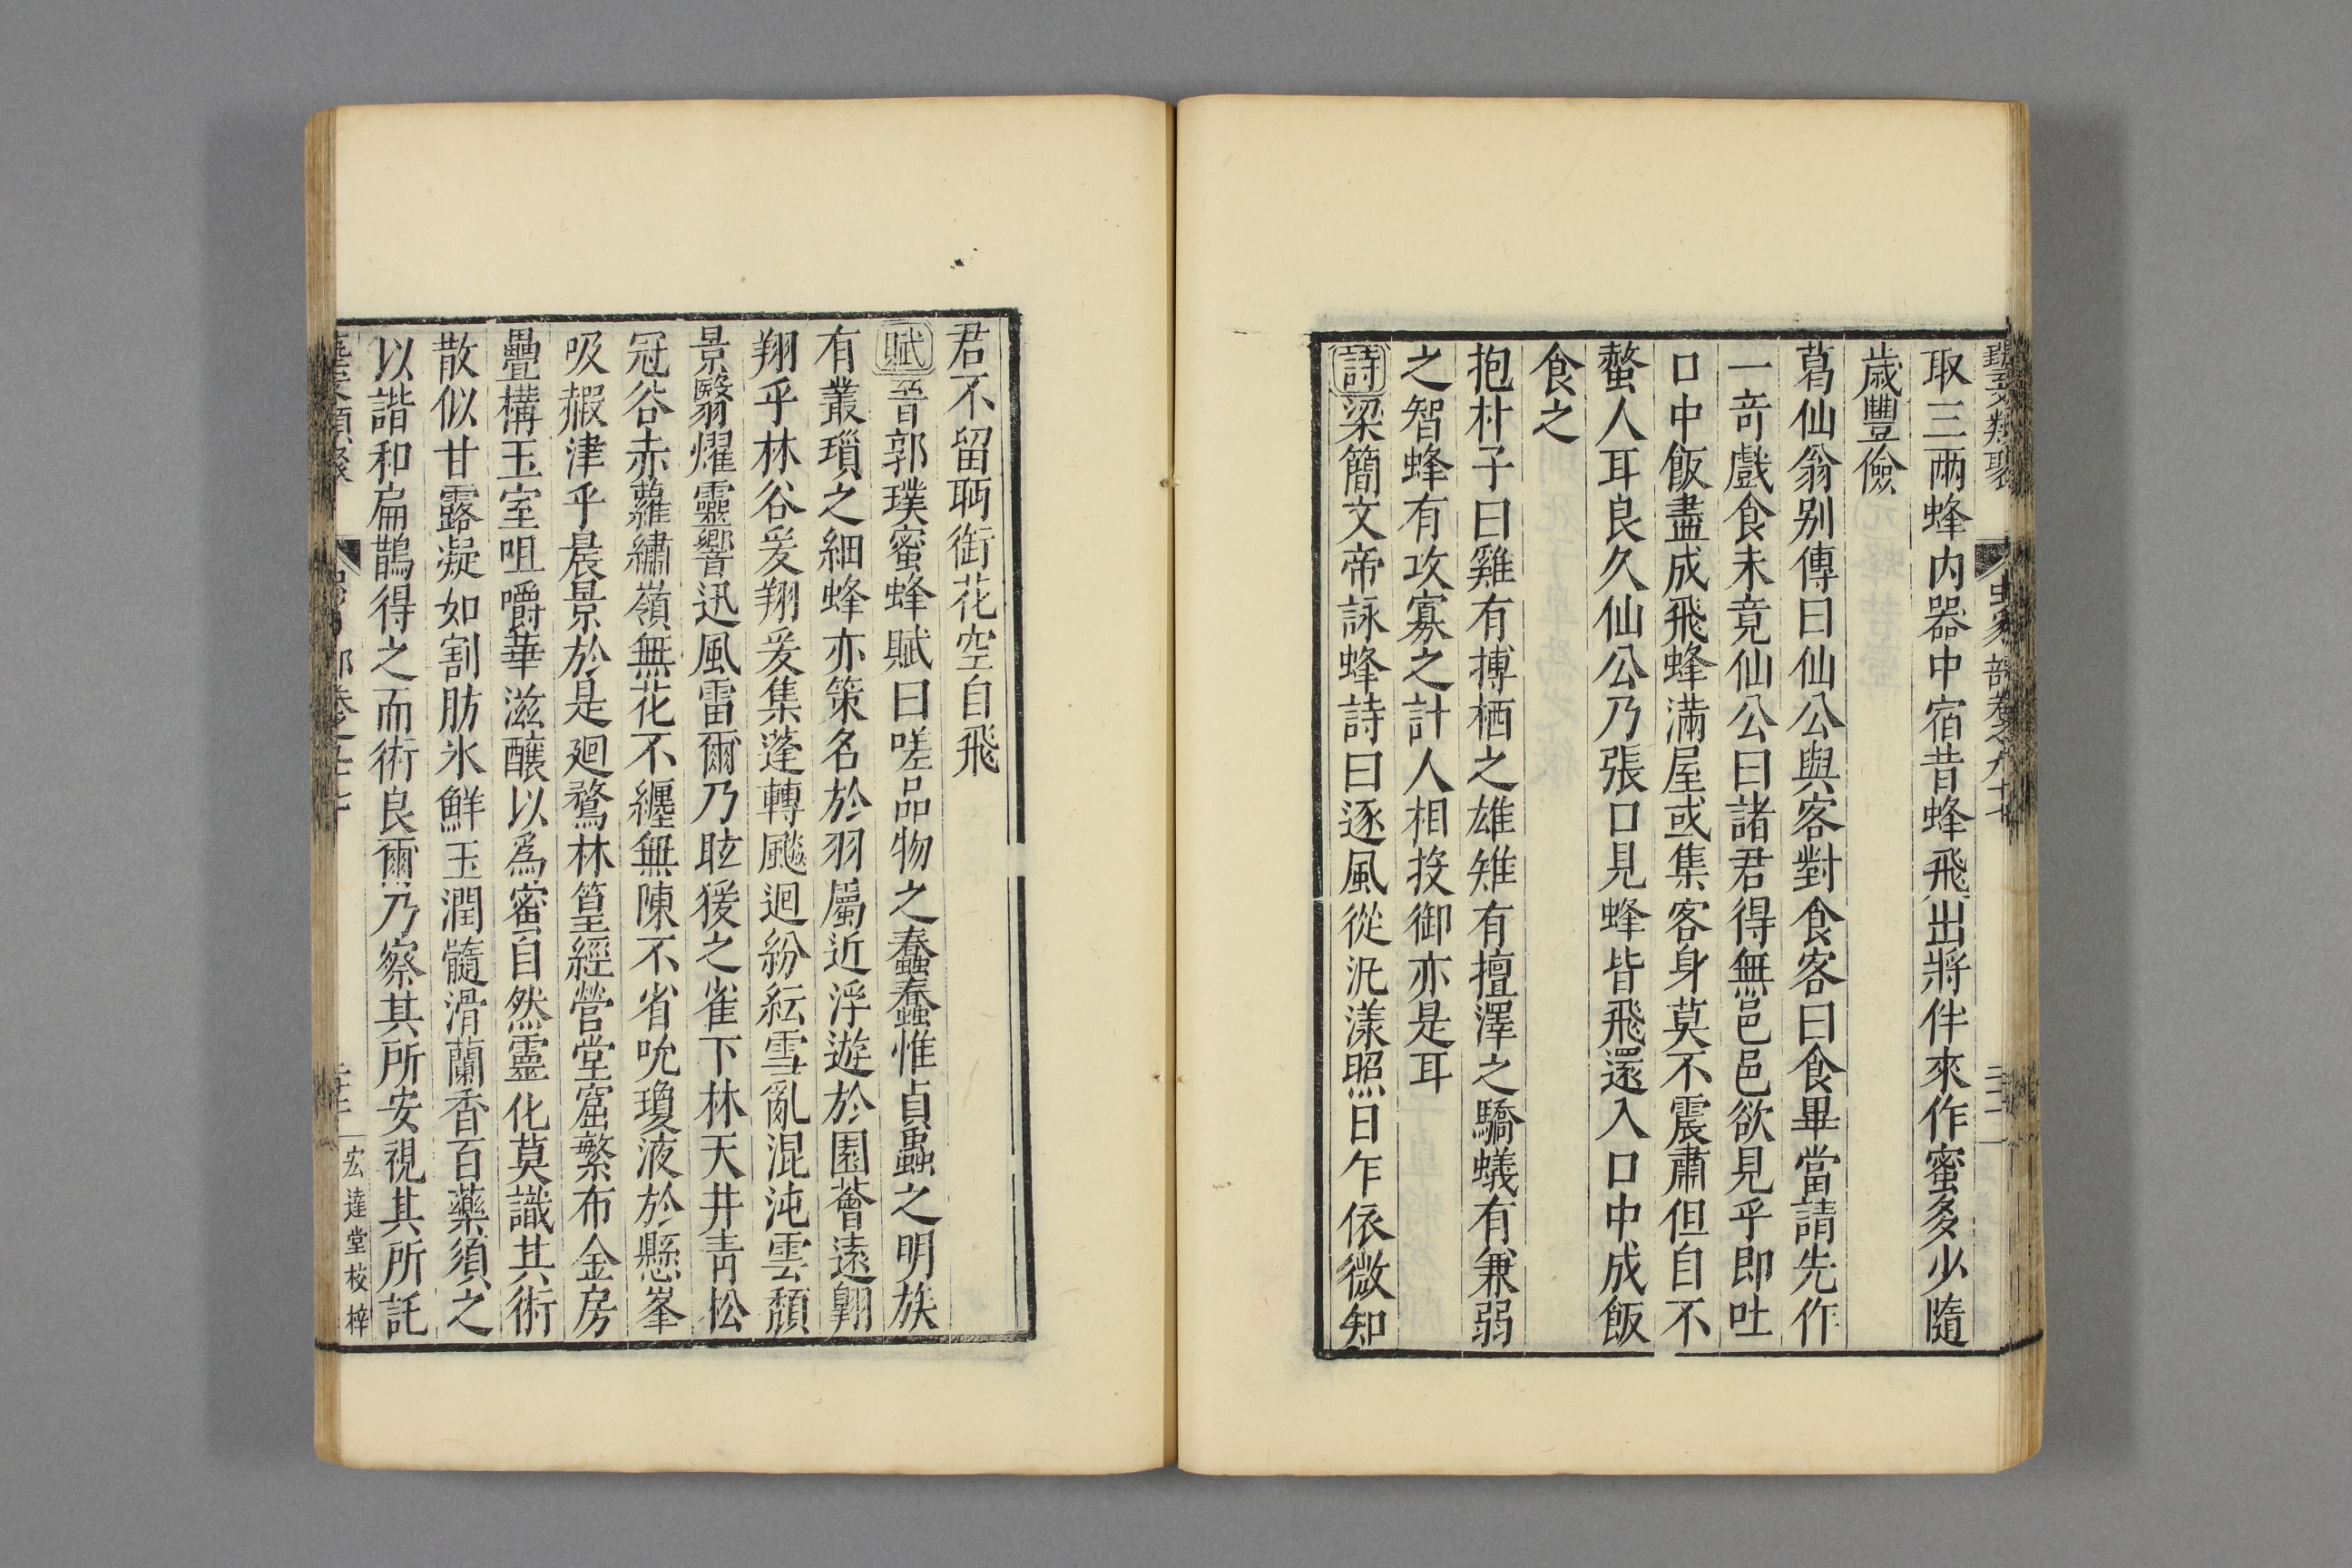 取三兩蜂内器中宿昔蜂飛出將伴來作蜜多少隨
歲豐儉
葛仙翁别傳曰仙公與客對食客曰食畢當請先作
一竒戲食未竟仙公曰諸君得無邑邑欲見乎即吐
口中飯盡成飛蜂滿屋或集客身莫不震肅但自不
螫人耳良久仙公乃張口見蜂皆飛還入口中成飯
食之
抱朴子曰雞有摶栖之雄雉有擅澤之驕蟻有兼弱
之智蜂有攻寡之計人相投御亦是耳
詩梁簡文帝詠蜂詩曰逐風從汎漾照日乍依微知
君不留眄銜花空自飛
賦晉郭璞蜜蜂賦曰嗟品物之蠢蠢惟貞蟲之明族
有叢瑣之細蜂亦策名於羽屬近浮遊於園薈遠翱
翔乎林谷爰翔爰集蓬轉飈迴紛紜雪亂混沌雲頹
景翳燿靈響迅風雷爾乃眩猨之雀下林天井青松
冠谷赤蘿繡嶺無花不纏無陳不省吮瓊液於懸峯
吸赮津乎晨景於是迴鶩林篁經營堂窟繁布金房
疊構玉室咀嚼華滋釀以爲蜜自然靈化莫識其術
散似甘露凝如割肪氷鮮玉潤髓滑蘭香百藥須之
以諧和扁鵲得之而術良爾乃察其所安視其所託
宏達堂校梓